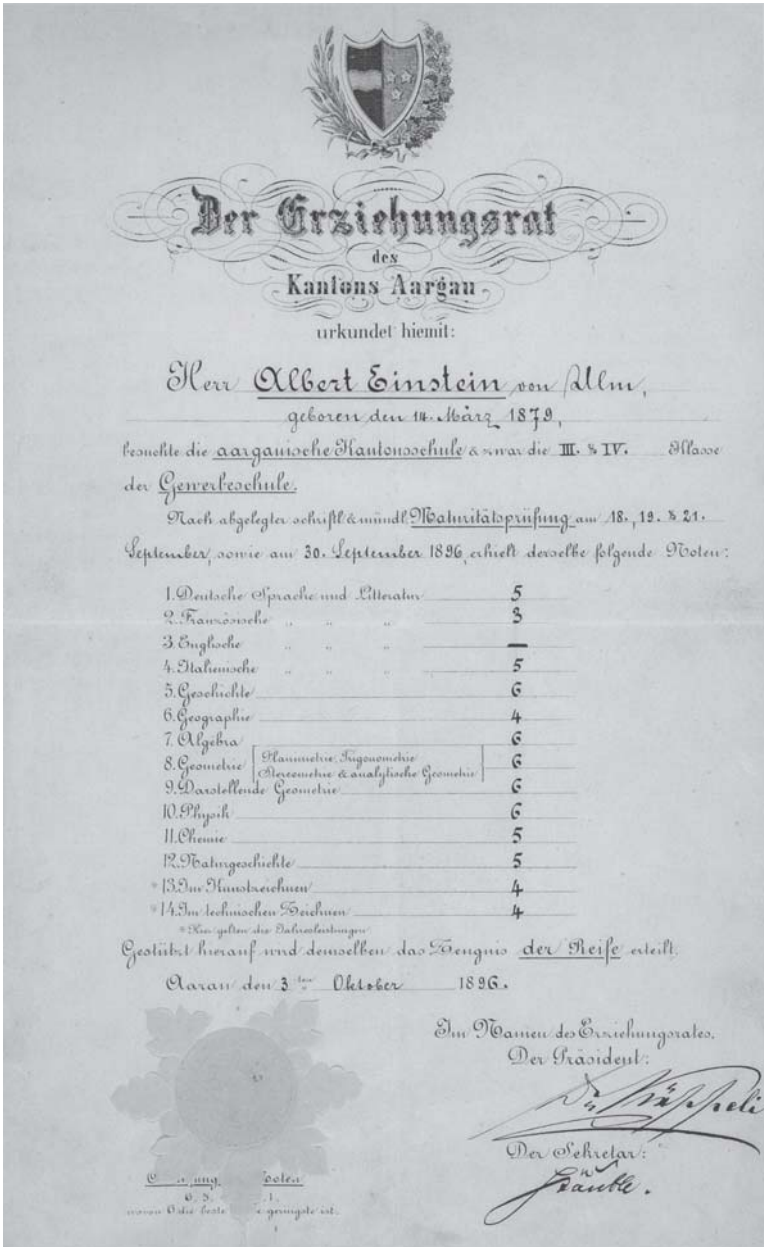 Der Erziehungsrat
des
Kantons Aargau
urkundet hiemit:
Herr Albert Einstein von Ulm,
geboren den 14. März 1879,
besuchte die aargauische Kantonsschule & zwar die III. & IV. Klasse
der Gewerbeschule.
Nach abgelegter schriftl. & mündl. Maturitätsprüfung am 18., 19. & 21.
September, sowie am 30. September 1896, erhielt derselbe folgende Noten:
1. Deutsche Sprache und Litteratur 5
2. Französische " " " 3
3. Englische " " " —
4. Italienische " " " 5
5. Geschichte 6
6. Geographie 4
7. Algebra 6
8. Geometrie Planimetrie, Trigonometrie 6
Stereometrie & analytische Geometrie
9. Darstellende Geometrie 6
10. Physik 6
11. Chemie 5
12. Naturgeschichte 5
* 13. Im Kunstzeichnen 4
* 14. Im technischen Zeichnen 4
* Hier gelten die Jahresleistungen.
Gestützt hierauf wird demselben das Zeugnis der Reife erteilt.
Aarau den 3ten Oktober 1896.
Im Namen des Erziehungsrates,
Der Präsident:
Dr. Käppeli
Der Sekretär:
Stäuble.
6. 5. 1.
wovon 6 die beste geringste ist.